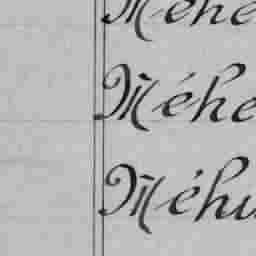 Méhe
Méhe
Méhu